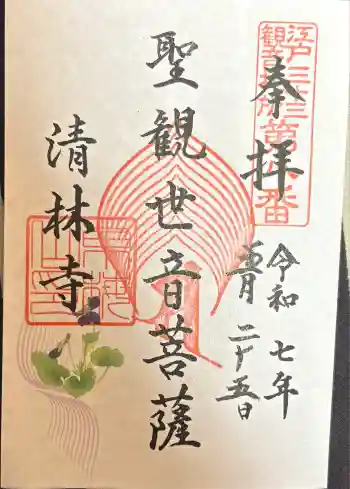 江戸三十三
観音札所第八番
奉拝
令和七年
五月二十五日
聖観世音菩薩
清林寺